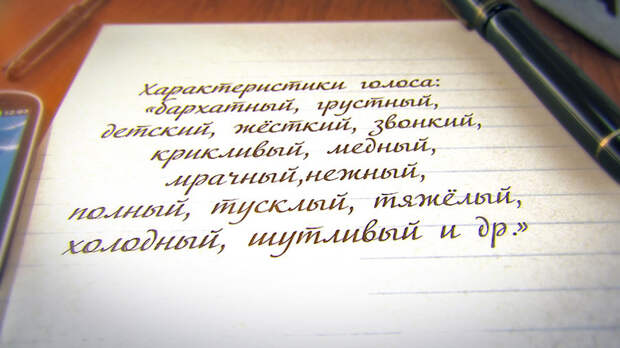 Характеристики голоса:
«бархатный, грустный,
детский, жёсткий, звонкий,
крикливый, медный,
мрачный,нежный,
полный, тусклый, тяжёлый,
холодный, шутливый и др.»